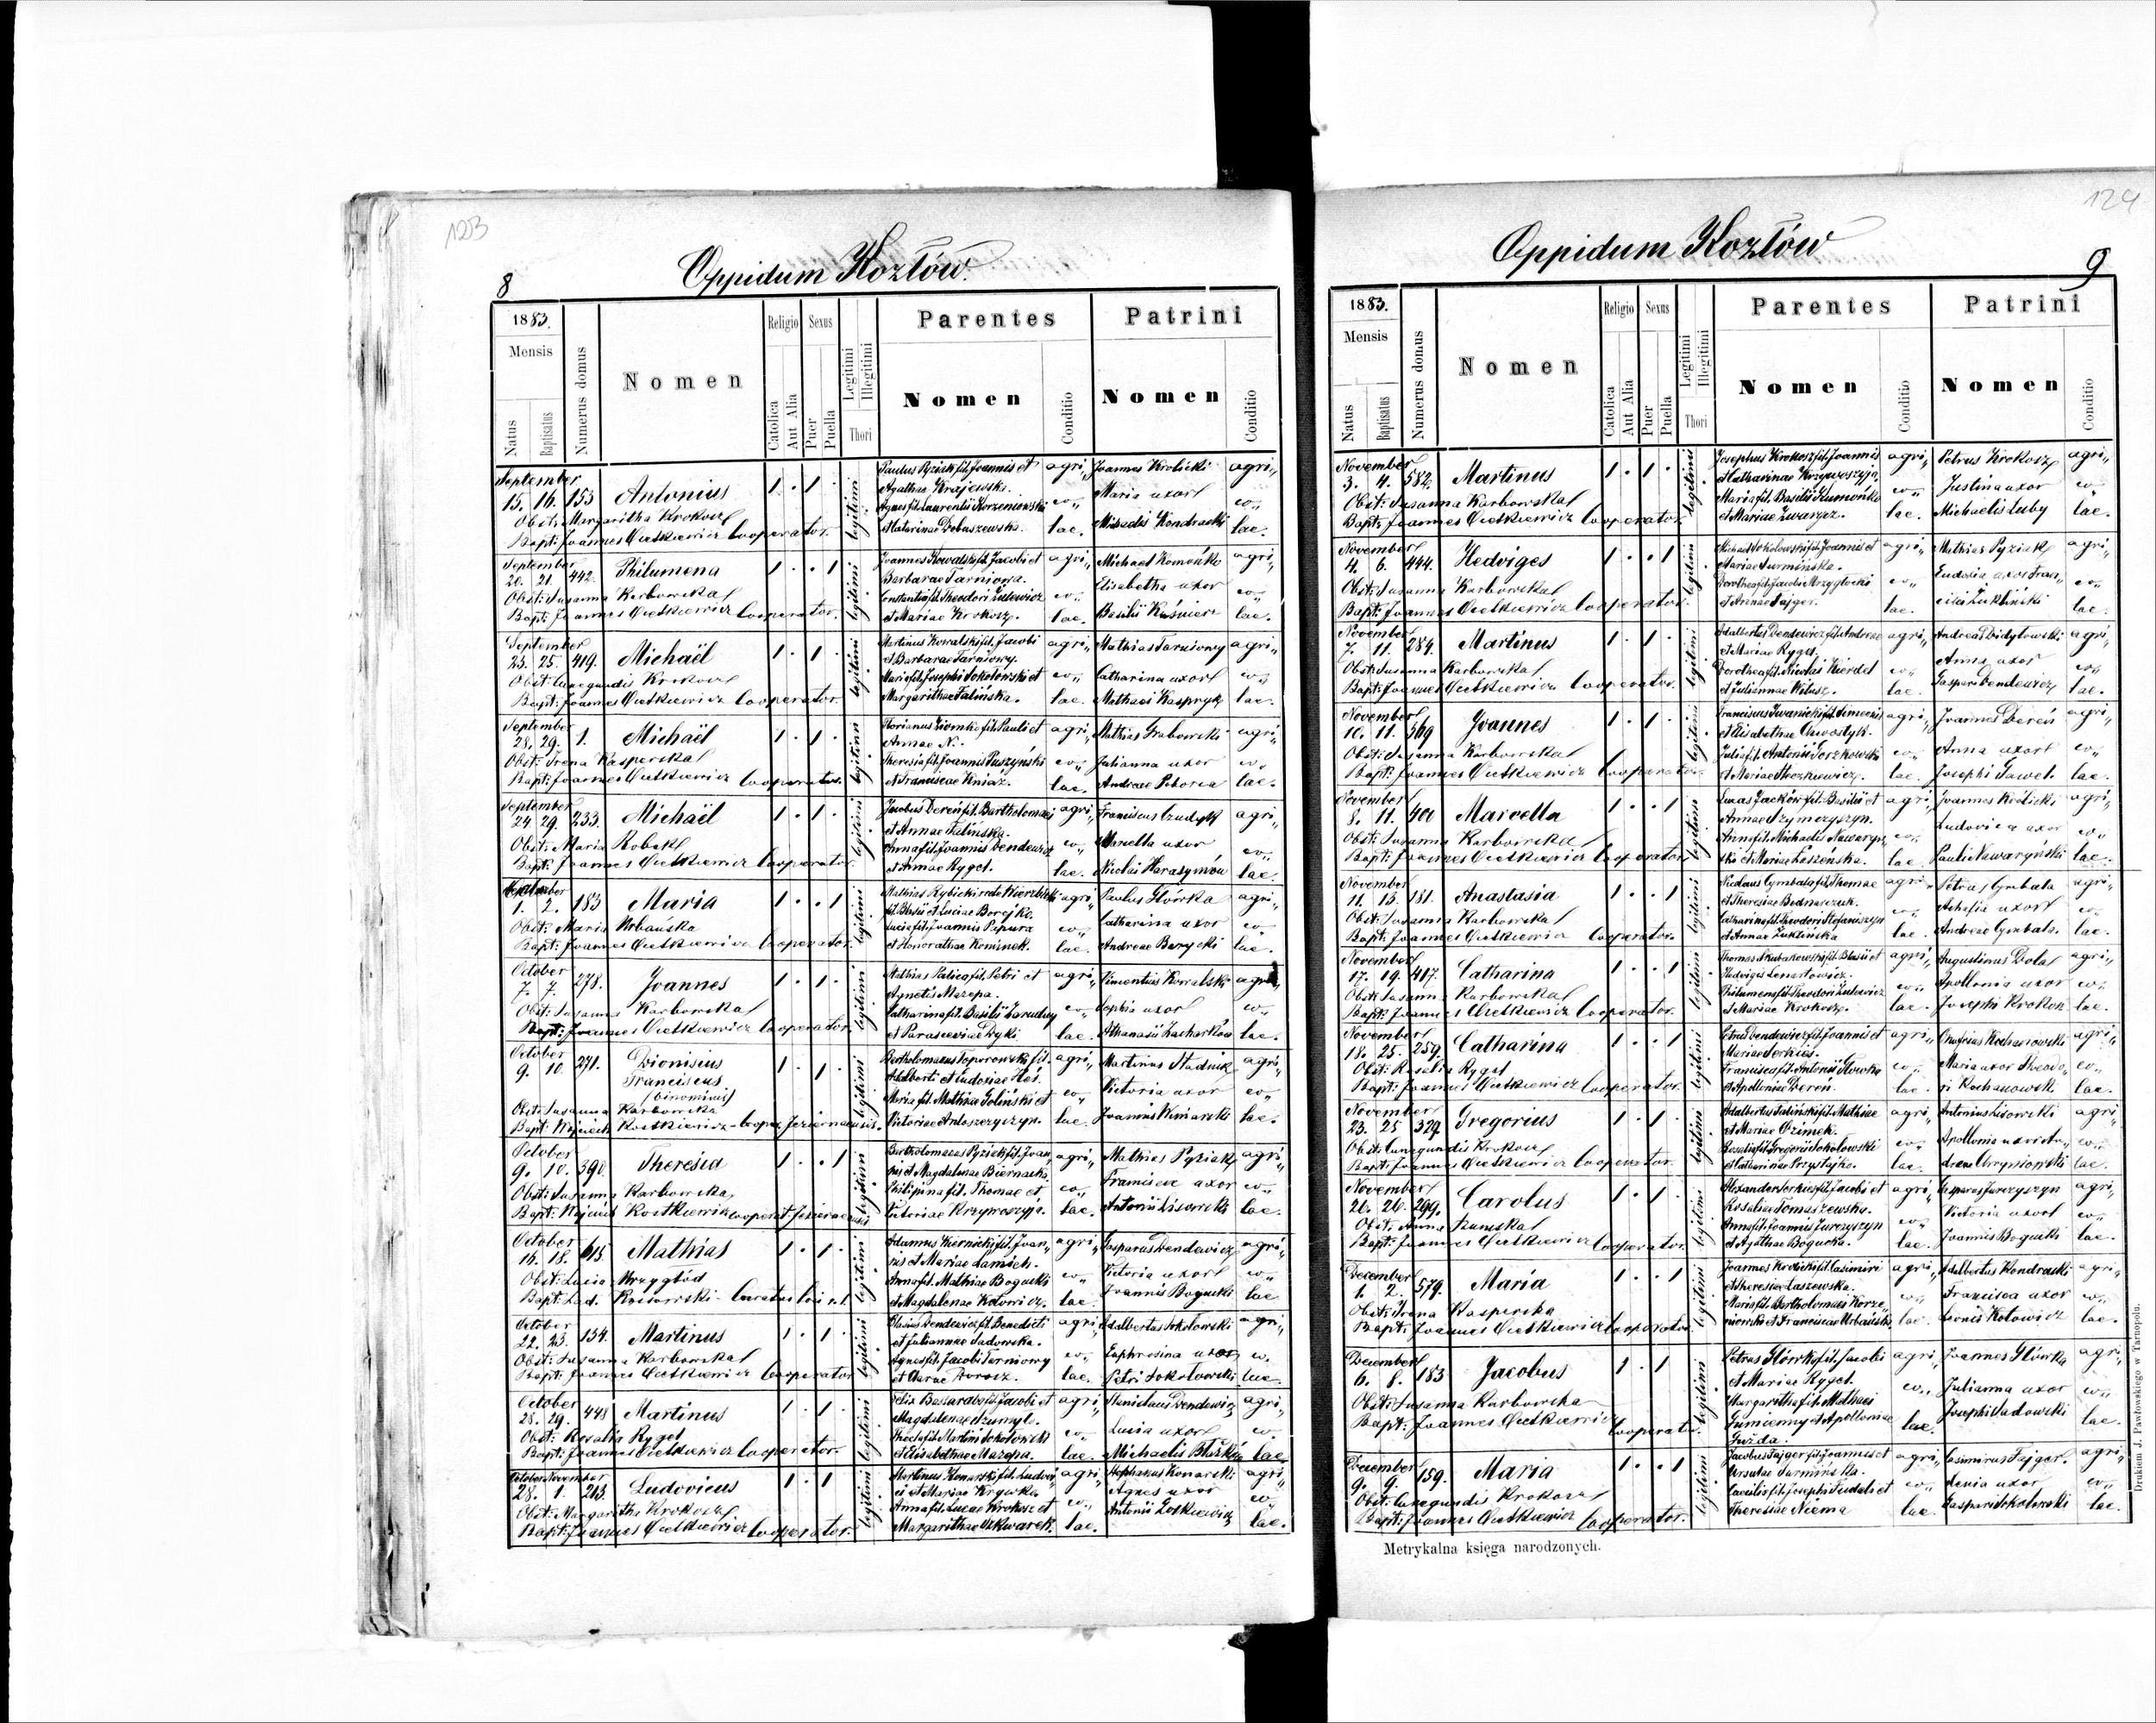 123
8
Oppidum Kozłów.
1883.
Mensis
Natus
Baptisatus
Numerus domus
Nomen
Religio
Catolica
Aut Alia
Sexus
Puer
Puella
Legitimi
Illegitimi
Thori
Parentes
Nomen
Conditio
Patrini
Nomen
Conditio
September
15. 16. 153 Antonius 1 · 1 · legitimi
Obst: Margaritha Krokosz
Bapt: Joannes Cietkiewicz Cooperator.
Paulus Pyziak fil. Joannis et
Agathae Krajewska.
Agnes fil. Laurentii Korzeniowski
et Catarinae Dobuszewska.
agri„
co„
lae.
Joannes Krolicki
Maria uxor
Michaelis Kondracki
agri„
co„
lae.
September
20. 21. 442. Philumena 1 · · 1 legitimi
Obst: Susanna Karbowska
Bapt: Joannes Cietkiewicz Cooperator.
Joannes Kowalski fil. Jacobi et
Barbarae Tarniowa.
Constantia fil. Theodori Zulewicz
et Mariae Krokosz.
agri„
co„
lae.
Michael Komońko
Elisabetha uxor
Basilii Kuśnierz
agri„
co„
lae.
September
23. 25. 419. Michaël 1 · 1 · legitimi
Obst: Cunegundis Krokosz
Bapt: Joannes Cietkiewicz Cooperator.
Martinus Kowalski fil. Jacobi
et Barbarae Tarniowy.
Maria fil. Josephi Sokołowski et
Margarithae Talińska.
agri„
co„
lae.
Mathias Tarniowy
Catharina uxor
Mathaei Kaspryk
agri„
co„
lae.
September
28. 29. 1. Michaël 1 · 1 · legitimi
Obst: Irena Kasperska
Bapt: Joannes Cietkiewicz Cooperator.
Florianus Ziomko fil. Pauli et
Annae N.
Theresia fil. Joannis Puszyński
et Franciscae Kniaz.
agri„
co„
lae.
Mathias Grabowski
Julianna uxor
Andreae Pokorea
agri„
co„
lae.
September
24. 29. 233. Michaël 1 · 1 · legitimi
Obst: Maria Robak
Bapt: Joannes Cietkiewicz Cooperator.
Jacobus Dereń fil. Bartholomaei
et Annae Talińska.
Anna fil. Joannis Dendewicz
et Annae Rygel.
agri„
co„
lae.
Franciscus Czudyk
Marcella uxor
Nicolai Harasymów
agri„
co„
lae.
1. 2. 183 Maria 1 · · 1 legitimi
Obst: Maria Urbańska
Bapt: Joannes Cietkiewicz Cooperator.
fil. Blasii et Luciae Borejko.
Lucia fil. Joannis Pipura
et Honorathae Kominek.
agri„
co„
lae.
Paulus Głórka
Catharina uxor
Andreae Barycki
agri„
co„
lae.
October
7. 7. 278. Joannes 1 · 1 · legitimi
Obst: Susanna Karbowska
Bapt: Joannes Cietkiewicz Cooperator.
Mathias Palica fil. Petri et
Agnetis Mazepa.
Catharina fil. Basilii
et Parascewiae Dyki.
agri„
co„
lae.
Vincentius Kowalski
Sophia uxor
Athanasii Zacharków
agri
co„
lae.
October
9. 10. 271. Dionisius 1 · 1 · legitimi
Franciscus
(binominus)
Obst: Susanna Karbowska
Bapt: Wojciech Kostkiewicz - Cooper. Jeziernaensis.
Bartholomaeus Toporowski fil.
Adalberti et Eudoxiae Hoś.
Maria fil. Mathiae Goliński et
Victoriae Antoszczyszyn.
agri„
co„
lae.
Martinus Stadnik
Victoria uxor
Joannis Winiarski
agri„
co„
lae.
October
9. 10. 390. Theresia 1 · · 1 legitimi
Obst: Susanna Karbowska
Bapt: Wojciech Kostkiewicz cooperat. Jeziernaensis
Bartholomaeus Pyziak fil. Joan„
nis et Magdalenae Biernacka.
Philipina fil. Thomae et
Victoriae Krzywoszyja.
agri„
co„
lae.
Mathias Pyziak
Francisca uxor
Antonii Lisowski
agri„
co„
lae.
October
16. 18. 615. Mathias 1 · 1 · legitimi
Obst: Lucia Mrzygłód
Bapt: Lad. Rossowski - Curatus loci r. l.
Adamus Kiernicki fil. Joan„
nis et Mariae Łamich.
Anna fil. Mathiae Bogucki
et Magdalenae Kotowicz.
agri„
co„
lae.
Gasparus Dendewicz
Victoria uxor
Joannis Bogucki
agri„
co„
lae
October
22. 23. 154. Martinus 1 · 1 · legitimi
Obst: Susanna Karbowska
Bapt: Joannes Cietkiewicz Cooperator
Blasius Dendewicz fil. Benedicti
et Juliannae Sadowska.
Agnes fil. Jacobi Tarniowy
et Clarae Dorosz.
agri„
co„
lae.
Adalbertus Sokołowski
Euphrosina uxor
Petri Sokołowski
agri„
co.
lae.
October
28. 29. 448 Martinus 1 · 1 · legitimi
Obst: Rosalia Rygel
Bapt: Joannes Cietkiewicz Cooperator.
Felix Bassaraba fil. Jacobi et
Magdalenae Szumylo.
Thecla fil. Martini Sokołowski
et Elisabethae Mazepa.
agri„
co„
lae.
Stanislaus Dendewicz
Lucia uxor
Michaelis
agri„
co.
lae
October November
28. 1. 213. Ludovicus 1 · 1 legitimi
Obst: Margaritha Krokosz
Bapt: Joannes Cietkiewicz Cooperator.
Martinus Konarski fil. Ludovi„
ci et Mariae Krywka
Anna fil. Lucae Krokosz et
Margarithae Szkwarek.
agri„
co„
lae.
Stephanus Konarski
Agnes uxor
Antonii Zołkiewicz
agri„
co„
lae.
124
9
Oppidum Kozłów
1883.
Mensis
Natus
Baptisatus
Numerus domus
Nomen
Religio
Catolica
Aut Alia
Sexus
Puer
Puella
Legitimi
Illegitimi
Thori
Parentes
Nomen
Conditio
Patrini
Nomen
Conditio
November
3. 4. 582. Martinus 1 · 1 · legitimi
Obst: Susanna Karbowska
Bapt: Joannes Cietkiewicz Cooperator.
Josephus Krokosz fil. Joannis
et Catharinae Krzywoszyja.
Maria fil. Basilii Kumońko
et Mariae Zwarycz.
agri„
co„
lae.
Petrus Krokosz
Justina uxor
Michaelis Luby
agri„
co„
lae.
November
4. 6. 444. Hedviges 1 · · 1 legitimi
Obst: Susanna Karbowska
Bapt: Joannes Cietkiewicz Cooperator.
Michael Sokołowski fil. Joannis et
Mariae Surmińska.
Dorothea fil. Jacobi Mrzygłocki
et Annae Fajger.
agri„
co„
lae.
Mathias Pyziak
Eudoxia uxor Fran„
cisci Zukliński
agri„
co„
lae.
November
7. 11. 284. Martinus 1 · 1 · legitimi
Obst: Susanna Karbowska
Bapt: Joannes Cietkiewicz Cooperator.
Adalbertus Dendewicz fil. Andreae
et Mariae Rygel.
Dorothea fil. Nicolai Kierdel
et Juliannae Witusz.
agri„
co„
lae.
Andreas Didyłowski
Anna uxor
Gaspari Dendewicz
agri„
co„
lae.
November
10. 11. 569 Joannes 1 · 1 · legitimi
Obst: Susanna Karbowska
Bapt: Joannes Cietkiewicz Cooperator.
Franciscus Iwanicki fil. Simeonis
et Elisabethae Chwostyk.
Julia fil. Antonii Gerzkowski
et Mariae Steczkiewicz.
agri„
co„
lae.
Joannes Dereń
Anna uxor
Josephi Gaweł.
agri„
co„
lae.
November
8. 11. 400 Marcella 1 · · 1 legitimi
Obst: Susanna Karbowska
Bapt: Joannes Cietkiewicz Cooperator.
Lucas Jacków fil. Basilii et
Annae Szymczyszyn.
Anna fil. Michaelis Nawaryń„
ski et Mariae Łaszewska.
agri„
co„
lae
Joannes Królicki
Ludovica uxor
Pauli Nawaryński
agri„
co„
lae.
November
11. 13. 181. Anastasia 1 · · 1 legitimi
Obst: Susanna Karbowska
Bapt: Joannes Cietkiewicz Cooperator.
Nicolaus Cymbała fil. Thomae
et Theresiae Bednarczuk.
Catharina fil. Theodori Stefaniszyn
et Annae Zuklińska
agri„
co„
lae.
Petrus Cymbała
Achafia uxor
Andreae Cymbała.
agri„
co„
lae.
November
17. 19. 417. Catharina 1 · · 1 legitimi
Obst: Susanna Karbowska
Bapt: Joannes Cietkiewicz Cooperator.
Thomas Skubakowski fil. Blasii et
Hedvigis Lenartowicz.
Philumena fil. Theodori Zulewicz
et Mariae Krokosz.
agri„
co„
lae.
Augustinus Dola
Apollonia uxor
Josephi Krokosz
agri„
co„
lae.
November
18. 25. 259. Catharina 1 · · 1 legitimi
Obst: Rosalia Rygel
Bapt: Joannes Cietkiewicz Cooperator.
Petrus Dendewicz fil. Joannis et
Mariae Serkies.
Francisca fil. Antonii Głowka
et Apolloniae Dereń.
agri„
co„
lae.
Onufrius Kochanowski
Maria uxor Theodo„
ri Kochanowski
agri„
co„
lae.
November
23. 25 329. Gregorius 1 · 1 · legitimi
Obst: Cunegundis Krokosz
Bapt: Joannes Cietkiewicz Cooperator.
Adalbertus Taliński fil. Mathiae
et Mariae Ozimek.
Rosalia fil. Gregorii Sokołowski
et Catharinae Przystajko.
agri„
co„
lae.
Antonius Lisowski
Apollonia uxor
agri„
co„
lae.
November
26. 26. 299. Carolus 1 · 1 · legitimi
Obst: Anna Szumska
Bapt: Joannes Cietkiewicz Cooperator.
Alexander Serkies fil. Jacobi et
Rosaliae Tomaszewska.
Anna fil. Joannis Jurczyszyn
et Agathae Bogucka.
agri„
co„
lae.
Gasparus Jurczyszyn
Victoria uxor
Joannis Bogucki
agri„
co„
lae.
December
1. 2. 579. Maria 1 · · 1 legitimi
Obst: Irena Kasperska
Bapt: Joannes Cietkiewicz Cooperator.
Joannes Krolicki fil. Casimiri
et Theresiae Łaszewska.
Maria fil. Bartholomaei Korze„
niowski et Franciscae Urbańska
agri„
co„
lae.
Adalbertus Kondracki
Francisca uxor
Leonis Kotowicz
agri„
co„
lae.
December
6. 8. 183 Jacobus 1 · 1 legitimi
Obst: Susanna Karbowska
Bapt: Joannes Cietkiewicz Cooperator.
Petrus Głórka fil. Jacobi
et Mariae Rygel.
Margaritha fil. Mathaei
Gumienny et Apolloniae
Guzda.
agri„
co„
lae.
Joannes Głórka
Julianna uxor
Josephi Sadowski
agri„
co„
lae.
December
9. 9. 159. Maria 1 · · 1 legitimi
Obst: Cunegundis Krokosz
Bapt: Joannes Cietkiewicz Cooperator.
Jacobus Fajger fil. Joannis et
Ursulae Surmińska.
Caecilia fil. Josephi Dudek et
Theresiae Niema
agri„
co„
lae.
Casimirus Fajger.
Xenia uxor
Gaspari Sokołowski
agri„
co„
lae.
Metrykalna księga narodzonych.
Drukiem J. Pawłowskiego w Tarnopolu.